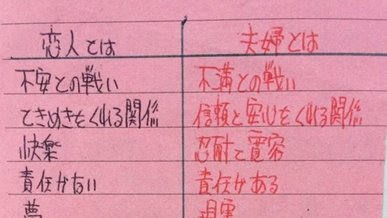 恋人とは 夫婦とは
不安との戦い 不満との戦い
ときめきをくれる関係 信頼と安心をくれる関係
快楽 忍耐と寛容
責任がない 責任がある
夢 現実